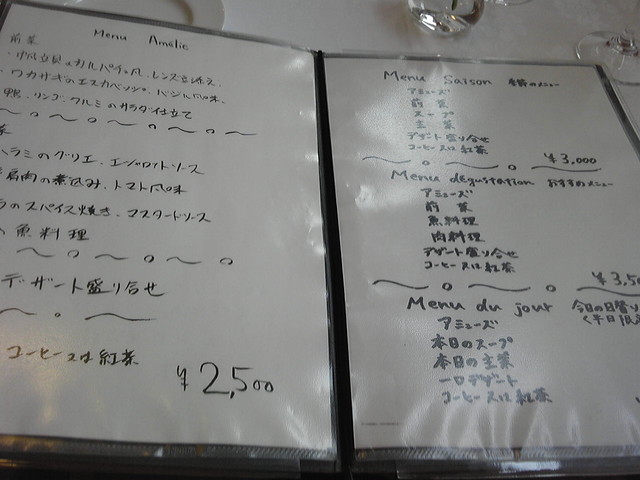 Menu Amélie
前菜
・帆立貝のカルパッチョ風、レンズ豆添え
・ワカサギのエスカベッシュ、バジル風味
鴨、リンゴ、クルミのサラダ仕立て
菜
ハラミのグリエ、エシャロットソース
肩肉の煮込み、トマト風味
のスパイス焼き、マスタードソース
魚料理
デザート盛り合せ
コーヒー又は紅茶
¥2,500
Menu Saison 季節のメニュー
アミューズ
前菜
スープ
主菜
デザート盛り合せ
コーヒー又は紅茶
¥3,000
Menu dégustation おすすめメニュー
アミューズ
前菜
魚料理
肉料理
デザート盛り合せ
コーヒー又は紅茶
¥3,50
Menu du jour 今日の日替り
アミューズ
<平日限
本日のスープ
本日の主菜
一口デザート
コーヒー又は紅茶